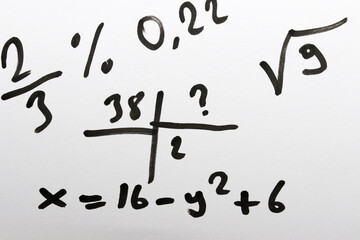 2/3 % 0,22 √9
38 ?
2
x = 16 - y² + 6